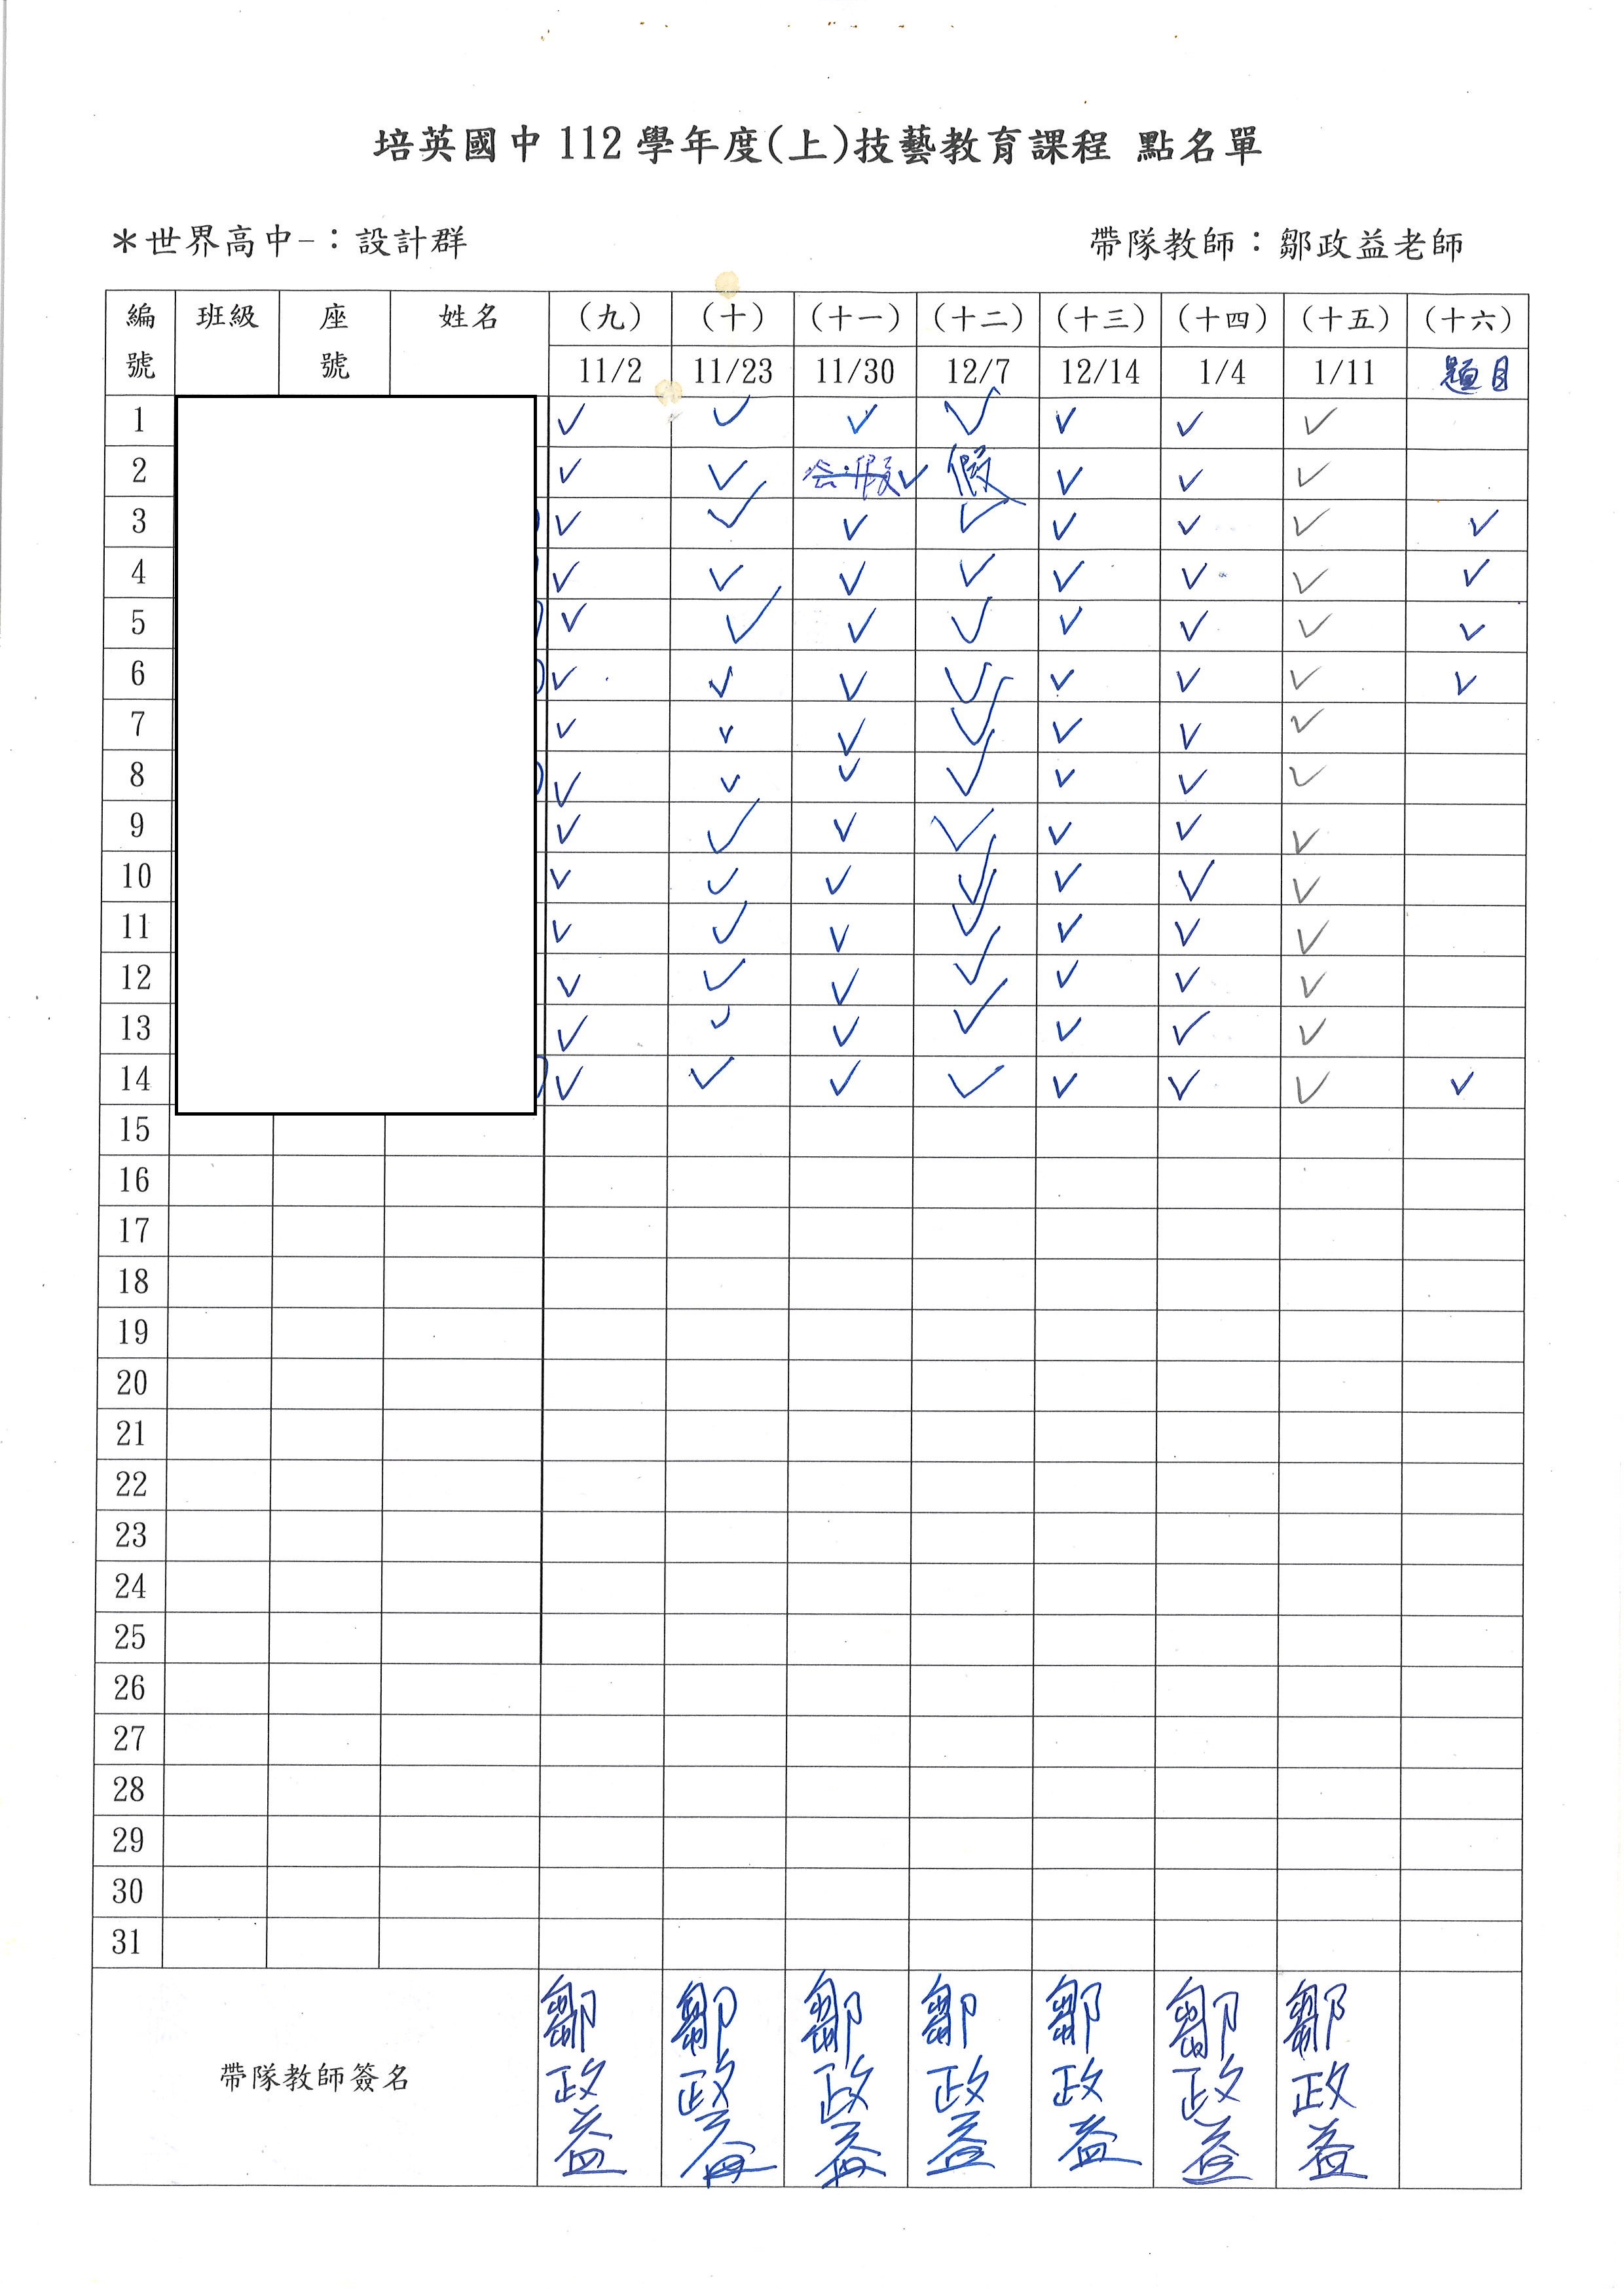 培英國中 112 學年度(上)技藝教育課程 點名單
＊世界高中-：設計群 帶隊教師：鄒政益老師
編號 班級 座號 姓名 (九) (十) (十一) (十二) (十三) (十四) (十五) (十六)
11/2 11/23 11/30 12/7 12/14 1/4 1/11 題目
1 ✓ ✓ ✓ ✓ ✓ ✓ ✓
2 ✓ ✓ 公假 ✓ 假 ✓ ✓ ✓
3 ✓ ✓ ✓ ✓ ✓ ✓ ✓ ✓
4 ✓ ✓ ✓ ✓ ✓ ✓ ✓ ✓
5 ✓ ✓ ✓ ✓ ✓ ✓ ✓ ✓
6 ✓ ✓ ✓ ✓ ✓ ✓ ✓ ✓
7 ✓ ✓ ✓ ✓ ✓ ✓ ✓
8 ✓ ✓ ✓ ✓ ✓ ✓ ✓
9 ✓ ✓ ✓ ✓ ✓ ✓ ✓
10 ✓ ✓ ✓ ✓ ✓ ✓ ✓
11 ✓ ✓ ✓ ✓ ✓ ✓ ✓
12 ✓ ✓ ✓ ✓ ✓ ✓ ✓
13 ✓ ✓ ✓ ✓ ✓ ✓ ✓
14 ✓ ✓ ✓ ✓ ✓ ✓ ✓ ✓
15
16
17
18
19
20
21
22
23
24
25
26
27
28
29
30
31
帶隊教師簽名 鄒政益 鄒政益 鄒政益 鄒政益 鄒政益 鄒政益 鄒政益